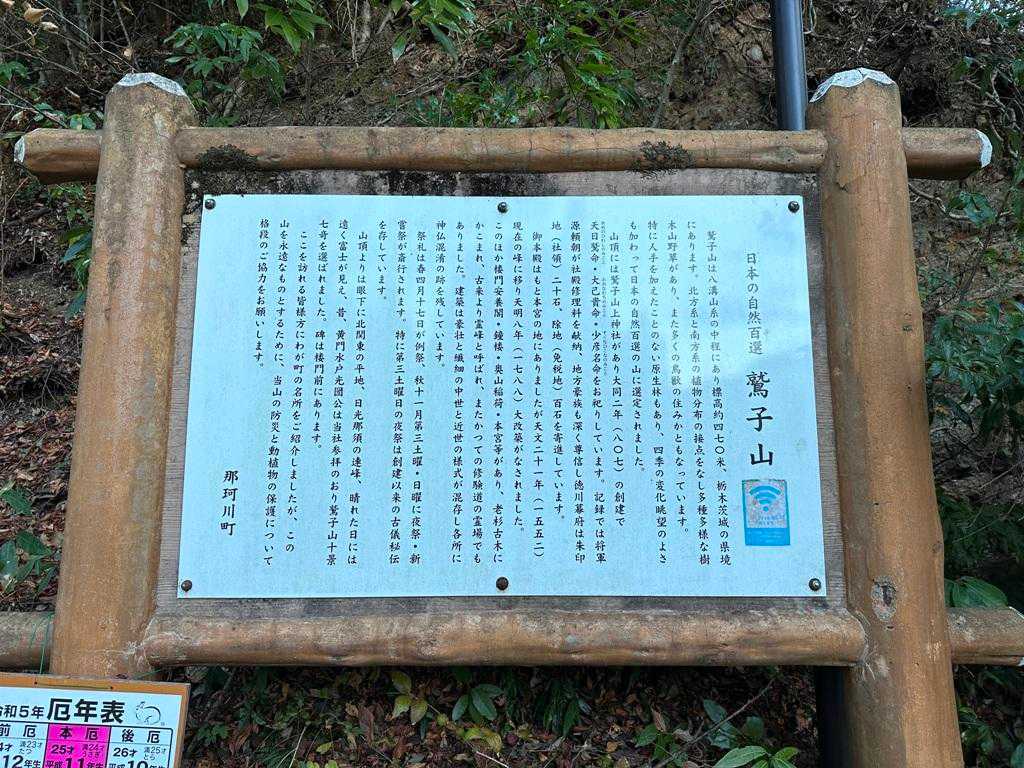 日本の自然百選 鷲子山
鷲子山は八溝山系の中程にあり標高約四七〇米、栃木茨城の県境
にあります。北方系と南方系の植物分布の接点をなし多種多様な樹
木山野草があり、また多くの鳥獣の住みかともなっています。
特に人手を加えたことのない原生林もあり、四季の変化眺望のよさ
も加わって日本の自然百選の山に選定されました。
山頂には鷲子山上神社があり大同二年（八〇七）の創建で
天日鷲命・大己貴命・少彦名命をお祀りしています。記録では将軍
源頼朝が社殿修理料を献納、地方豪族も深く尊信し徳川幕府は朱印
地（社領）二十石、除地（免税地）百石を寄進しています。
御本殿はもと本宮の地にありましたが天文二十一年（一五五二）
現在の峰に移り天明八年（一七八八）大改築がなされました。
このほか楼門安養閣・鐘楼・奥山稲荷・本宮等があり、老杉古木に
かこまれ、古来より霊峰と呼ばれ、またかつての修験道の霊場でも
ありました。建築は豪壮と繊細の中世と近世の様式が混存し各所に
神仏混淆の跡を残しています。
祭礼は春四月十七日が例祭、秋十一月第三土曜・日曜に夜祭・新
嘗祭が斎行されます。特に第三土曜日の夜祭は創建以来の古儀秘伝
を存しています。
山頂よりは眼下に北関東の平地、日光那須の連峰、晴れた日には
遠く富士が見え、昔、黄門水戸光圀公は当社参拝のおり鷲子山十景
七奇を選ばれました。碑は楼門前にあります。
ここを訪れる皆様方にわが町の名所をご紹介しましたが、この
山を永遠なものとするために、当山の防災と動植物の保護について
格段のご協力をお願いします。
那珂川町
令和5年 厄年表
前厄 本厄 後厄
4才 満23才 たつ 25才 満24才 うさぎ 26才 満25才 とら
12年生 平成11年生 平成10年生